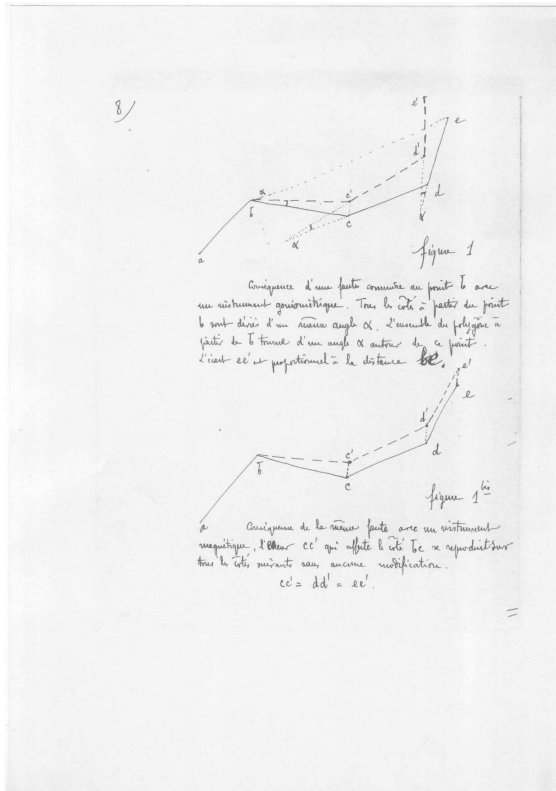 8/
e'
e
d'
α
c'
d
b
c
α
α
a
figure 1
Conséquence d'une faute commise au point b avec
un instrument goniométrique. Tous les côtés à partir du point
b sont déviés d'un même angle α. L'ensemble du polygone à
partir de b tourne d'un angle α autour de ce point.
L'écart ee' est proportionnel à la distance be.
e'
e
d'
c'
d
b
c
figure 1 bis
a
Conséquence de la même faute avec un instrument
magnétique, l'erreur cc' qui affecte le côté bc se reproduit sur
tous les côtés suivants sans aucune modification.
cc' = dd' = ee'.